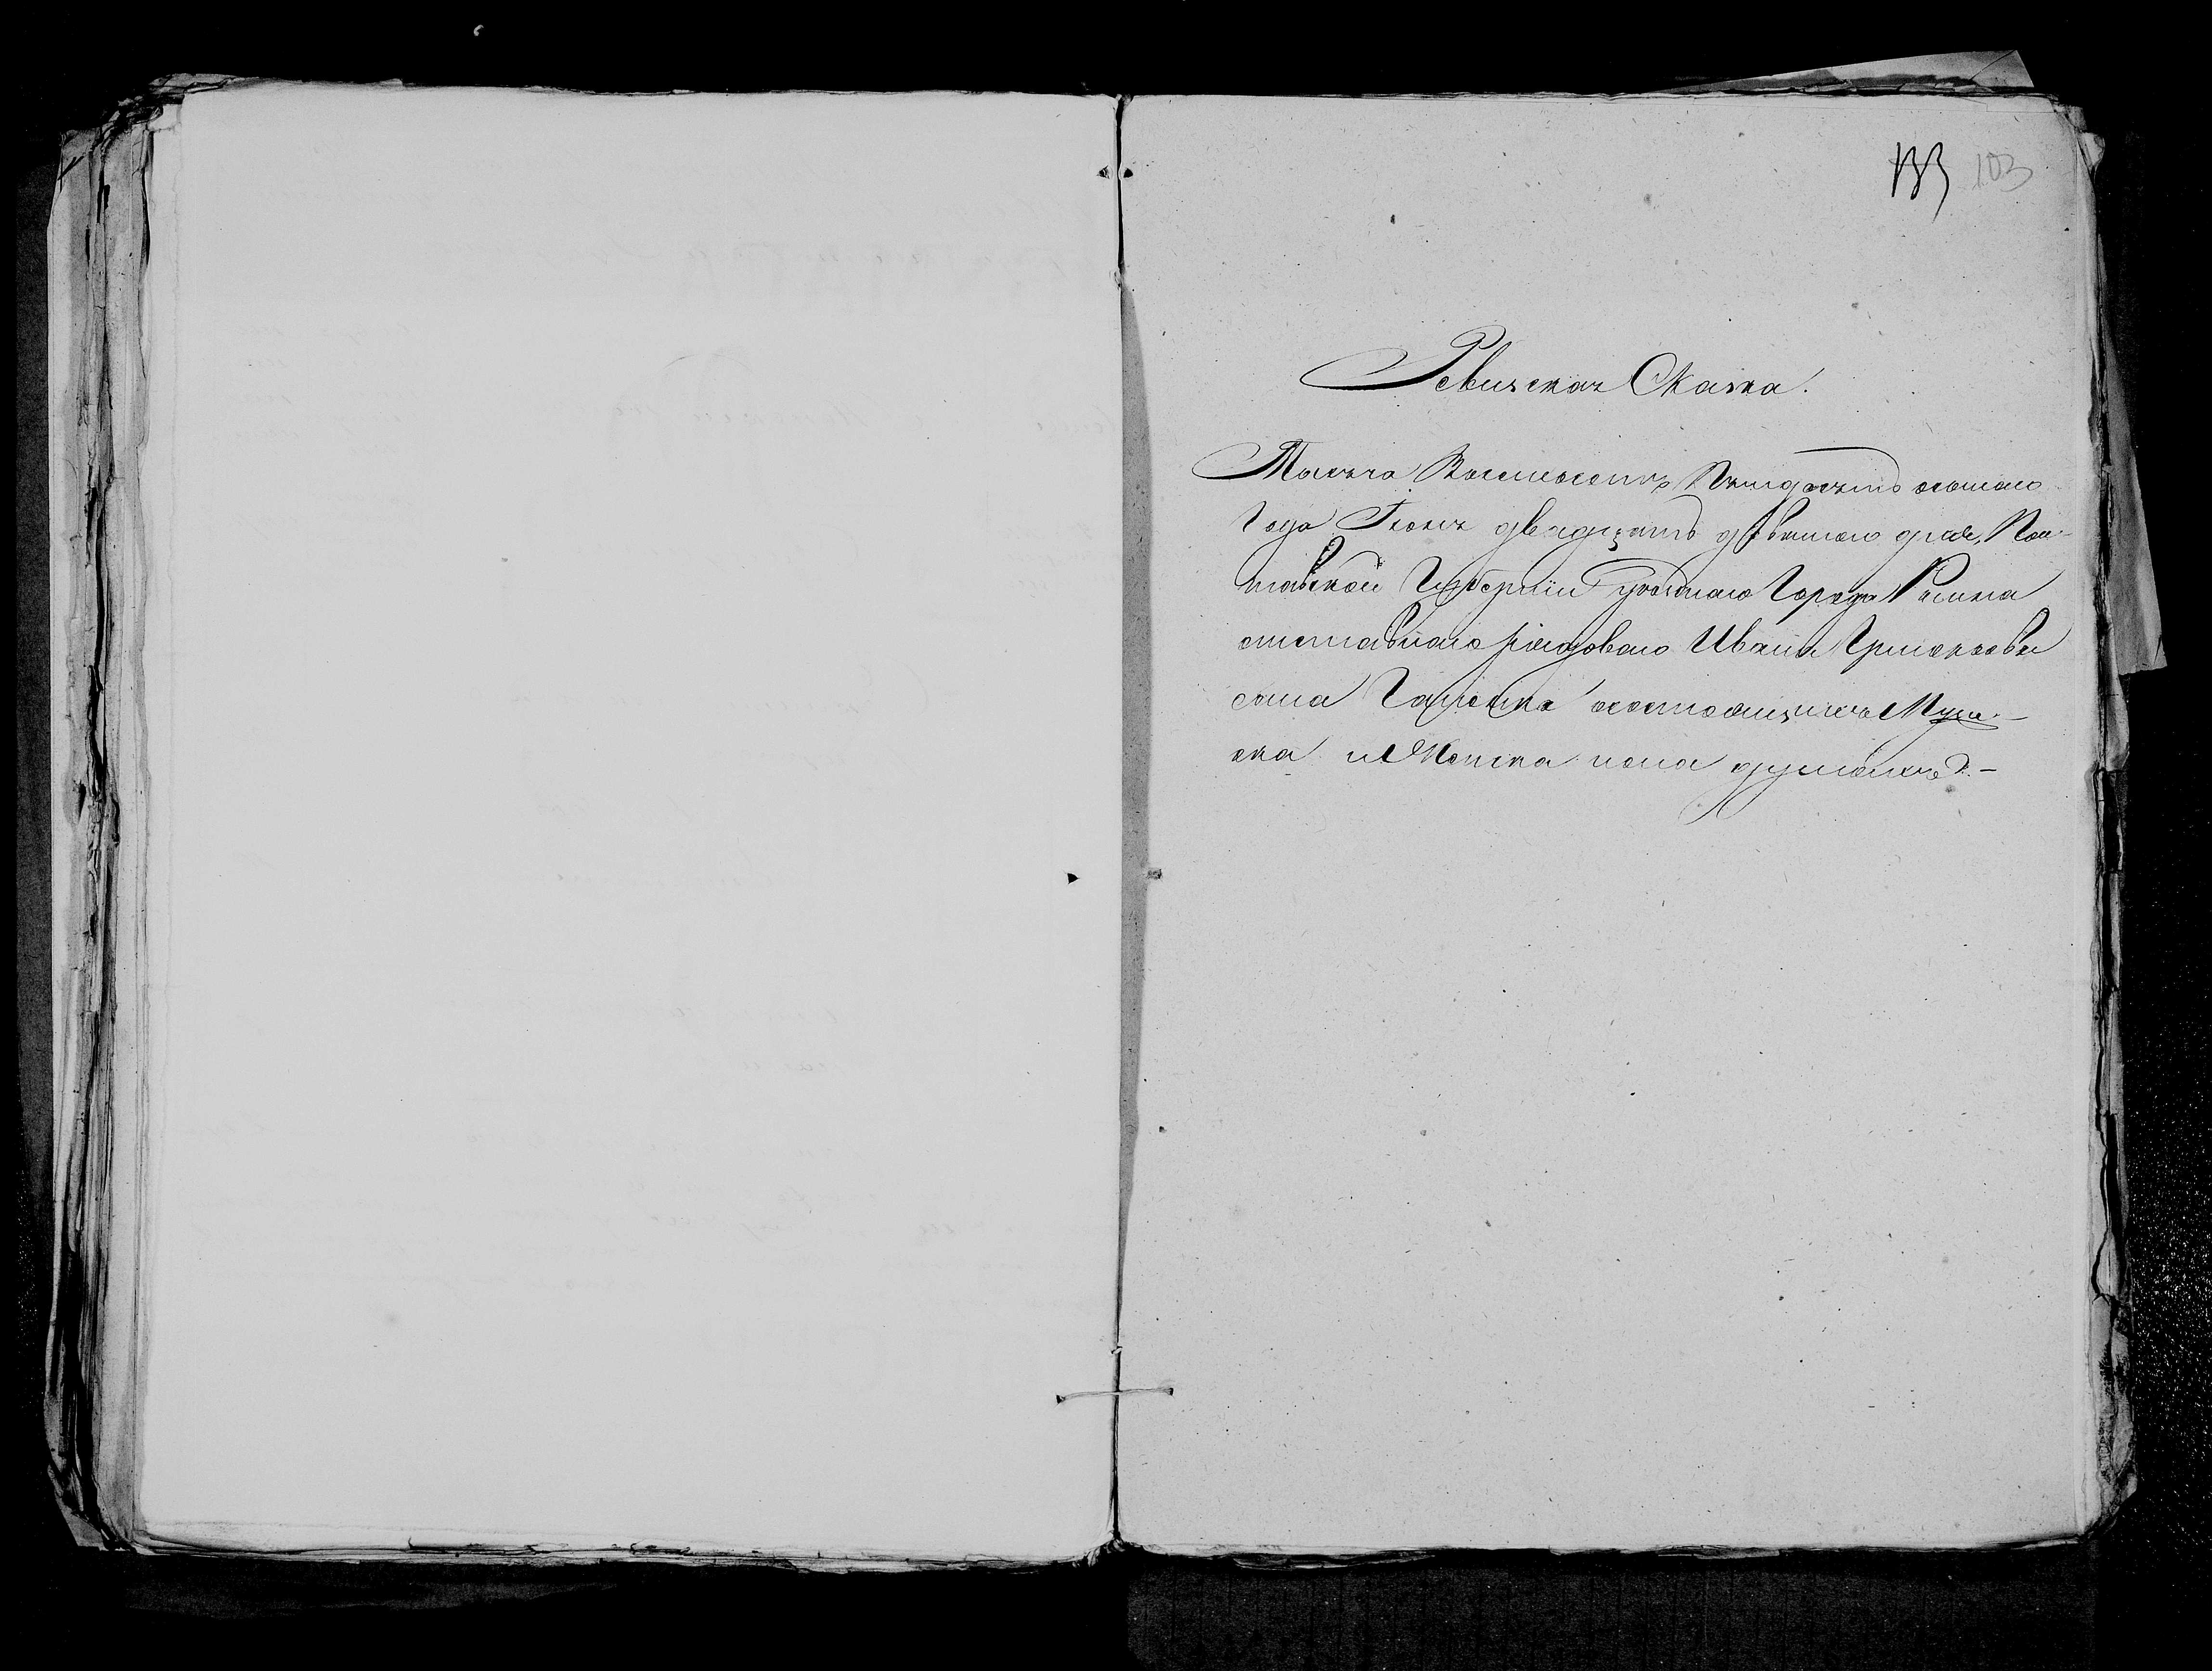 133 103
Ревизская Сказка.
Тысяча Восемьсотъ Пятдесятъ осьмаго
Года Іюня двадцять девятаго дня, Пол-
тавской Губерніи уезднаго Города Ромна
отставнаго рядоваго Ивана
сына о состоящихъ Муже-
ска и Женска пола душахъ. —